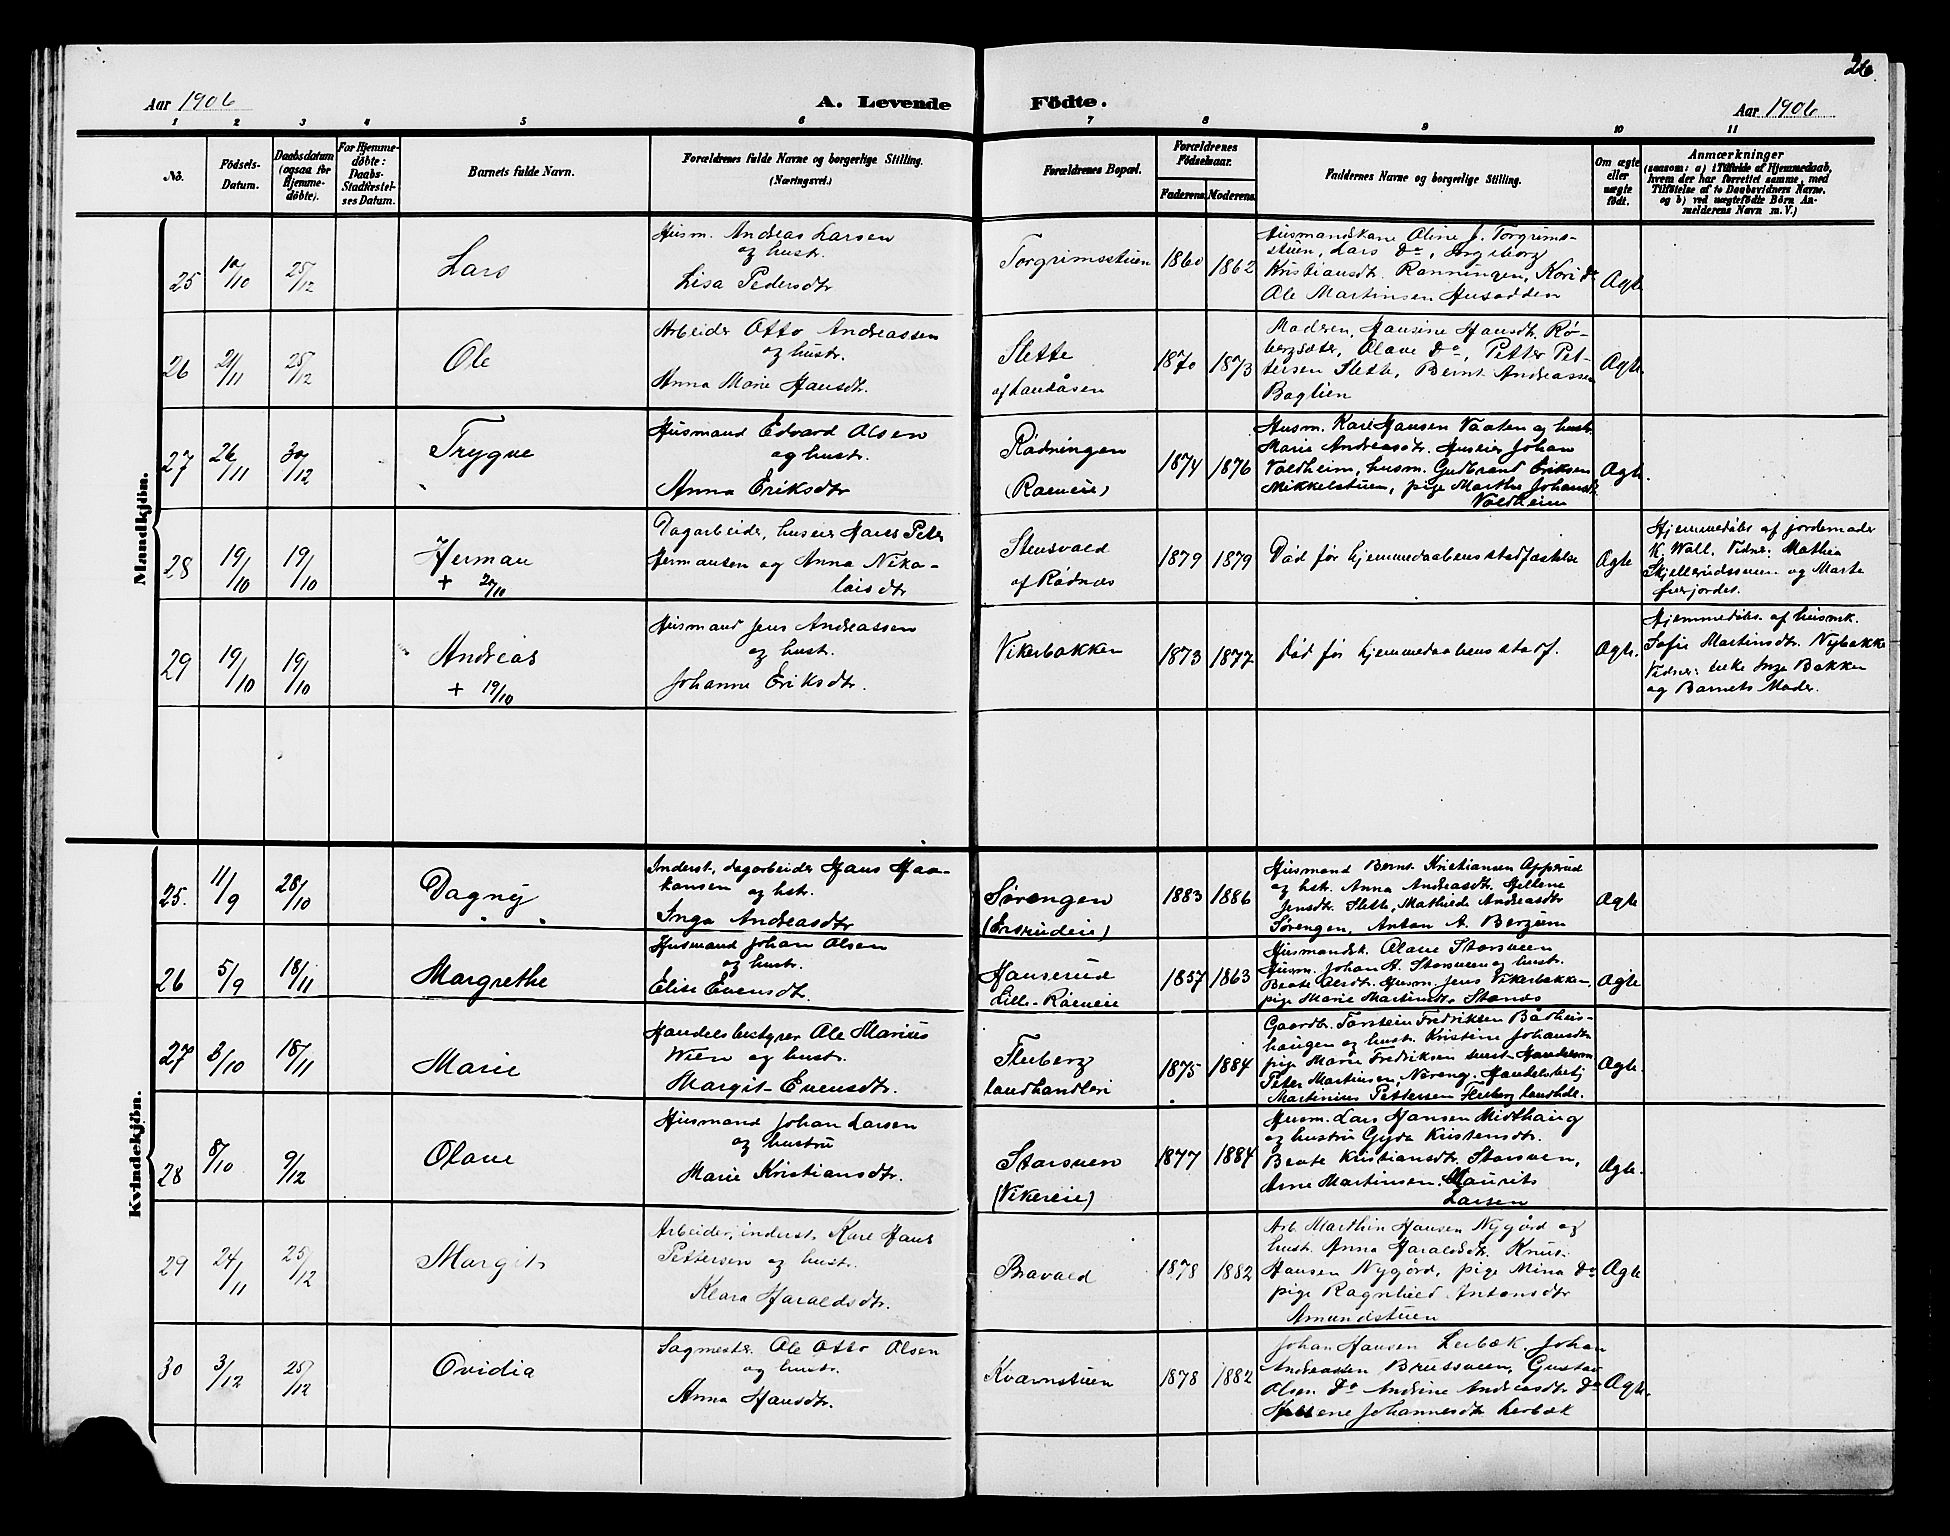 26.
Aar 1906 A. Levende Födte. Aar 1906
1 2 3 4 5 6 7 8 9 10 11
No. Födsels-Datum. Daabsdatum (ogsaa for Hjemme-döbte). For Hjemme-döbte: Daabs-Stadfæstel-ses Datum. Barnets fulde Navn. Forældrenes fulde Navne og borgerlige Stilling. (Næringsvei.) Forældrenes Bopæl. Forældrenes Födselsaar. Faderens. Moderens. Faddernes Navne og borgerlige Stilling. Om ægte eller uægte født. Anmærkninger (saasom: a) i Tilfælde af Hjemmedaab, hvem der har forrettet samme, med Tilföielse af to Daabsvidners Navne, og b) ved uægtefödte Börn An-melderens Navn m. V.)
Mandkjön.
25 10/10 25/12 Lars
Husm. Andreas Larsen
og hustr.
Lisa Pedersdtr
Torgrimsstuen 1860 1862
Husmandskone Oline J. Torgrims-
stuen, Lars Do, Ingeborg
Kristiansdtr. Rønningen, Kari Do
Ole Martinsen Husodden
Ægte
26 21/11 25/12 Ole
Arbeider Otto Andreassen
og hustr.
Anna Marie Hansdtr.
Slette
af Landåsen
1870 1873
Moderen, Hansine Hansdtr. Rø-
bergsæter, Olave Do, Petter Pet-
tersen Slette, Bernt Andreassen
Baglien
Ægte
27 26/11 30/12 Trygve
Husmand Edvard Olsen
og hustr.
Anna Eriksdtr
Rødningen
(Røeneie)
1874 1876
Husm. Karl Hansen Vaaten og hustr.
Marie Andreasdtr. Huseier Johan
Valdheim, husm. Gudbrand Eriksen
Mikkelstuen, pige Marthe Johansdtr.
Valdheim
Ægte.
28 19/10 19/10 Herman
+ 20/10
Dagarbeider, huseier Hans Peter
Hermansen og Anna Niko-
laisdtr
Stensvold
af Rødnæs
1879 1879
Død før hjemmedaabens stadfæstelse
Ægte
Hjemmedøbt af jordemoder
K. Wall. Vidner: Mathea
Skjellerudsveen og Marte
fierjordet.
29 19/10 19/10 Andreas
+ 19/10
Husmand Jens Andreassen
og hustr.
Johanne Eriksdtr.
Vikerbakken 1873 1877
Død før hjemmedaabens stadf.
Ægte.
Hjemmedøbt af husmk.
Sofie Martinsdtr. Nybakke
Vidner: enke Inge Bakken
og Barnets Moder.
Kvindekjön.
25. 11/9 28/10 Dagny
Inderst, dagarbeider Hans Haa-
kansen og hstr.
Inga Andreasdtr
Sørengen
(Erstrudeie)
1883 1886
Husmand Bernt Kristiansen Apperud
og hst. Anna Andreasdtr. Hellene
Jensdtr. Slette, Mathilde Andreasdtr
Sørengen, Anton A. Bergum
Ægte
26 5/9 18/11 Margrethe
Husmand Johan Olsen
og hustr.
Elise Evensdtr.
Hanserud
Lille-Røeneie
1857 1863
Husmandsk. Olave Storsveen
Husm. Johan A. Storsveen og hustr.
Beate Olesdtr. Husm. Jens Vikerbakken,
pige Marie Martinsdtr. Stenås
Ægte
27 3/10 18/11 Marie
Handelsbestyrer Ole Marius
Wien og hustr.
Margit Evensdtr.
Fluberg
landhandleri
1875 1884
Gaardbr. Torstein Fredriksen Badheis-
haugen og hustr. Kristine Johansdtr
pige Marie Fredriksen
Peter Martinsen, Nereng. Handelsbetj
Martinius Pettersen Fluberg landhdl.
Ægte.
28 8/10 9/12 Olave
Husmand Johan Larsen
og hustru
Marie Kristiansdtr.
Storsveen
(Vikereie)
1877 1884
Husm. Lars Hansen Midthaug
og hustru Gyda Kristensdtr.
Beate Kristiansdtr. Storsveen,
Arne Martinsen. Maurits
Larsen
Ægte.
29 24/11 25/12 Margit
Arbeider, inderst, Karl Hans
Pettersen og hustr.
Klara Haraldsdtr.
Bravold 1878 1882
Arb. Marthin Hansen Nygård og
hustr. Anna Haraldsdtr. Knut
Hansen Nygård, pige Mina Do
pige Ragnhild Antonsdtr
Amundstuen
Ægte
30 3/12 25/12 Ovidia
Sagmester Ole Otto Olsen
og hustr.
Anna Hansdtr.
Kværnstuen 1878 1882
Johan Hansen Lerbæk, Johan
Andreassen Brusveen, Gustav
Olsen Do Andrine Andreasdtr Do
Hellene Johannesdtr Lerbæk
Ægte.